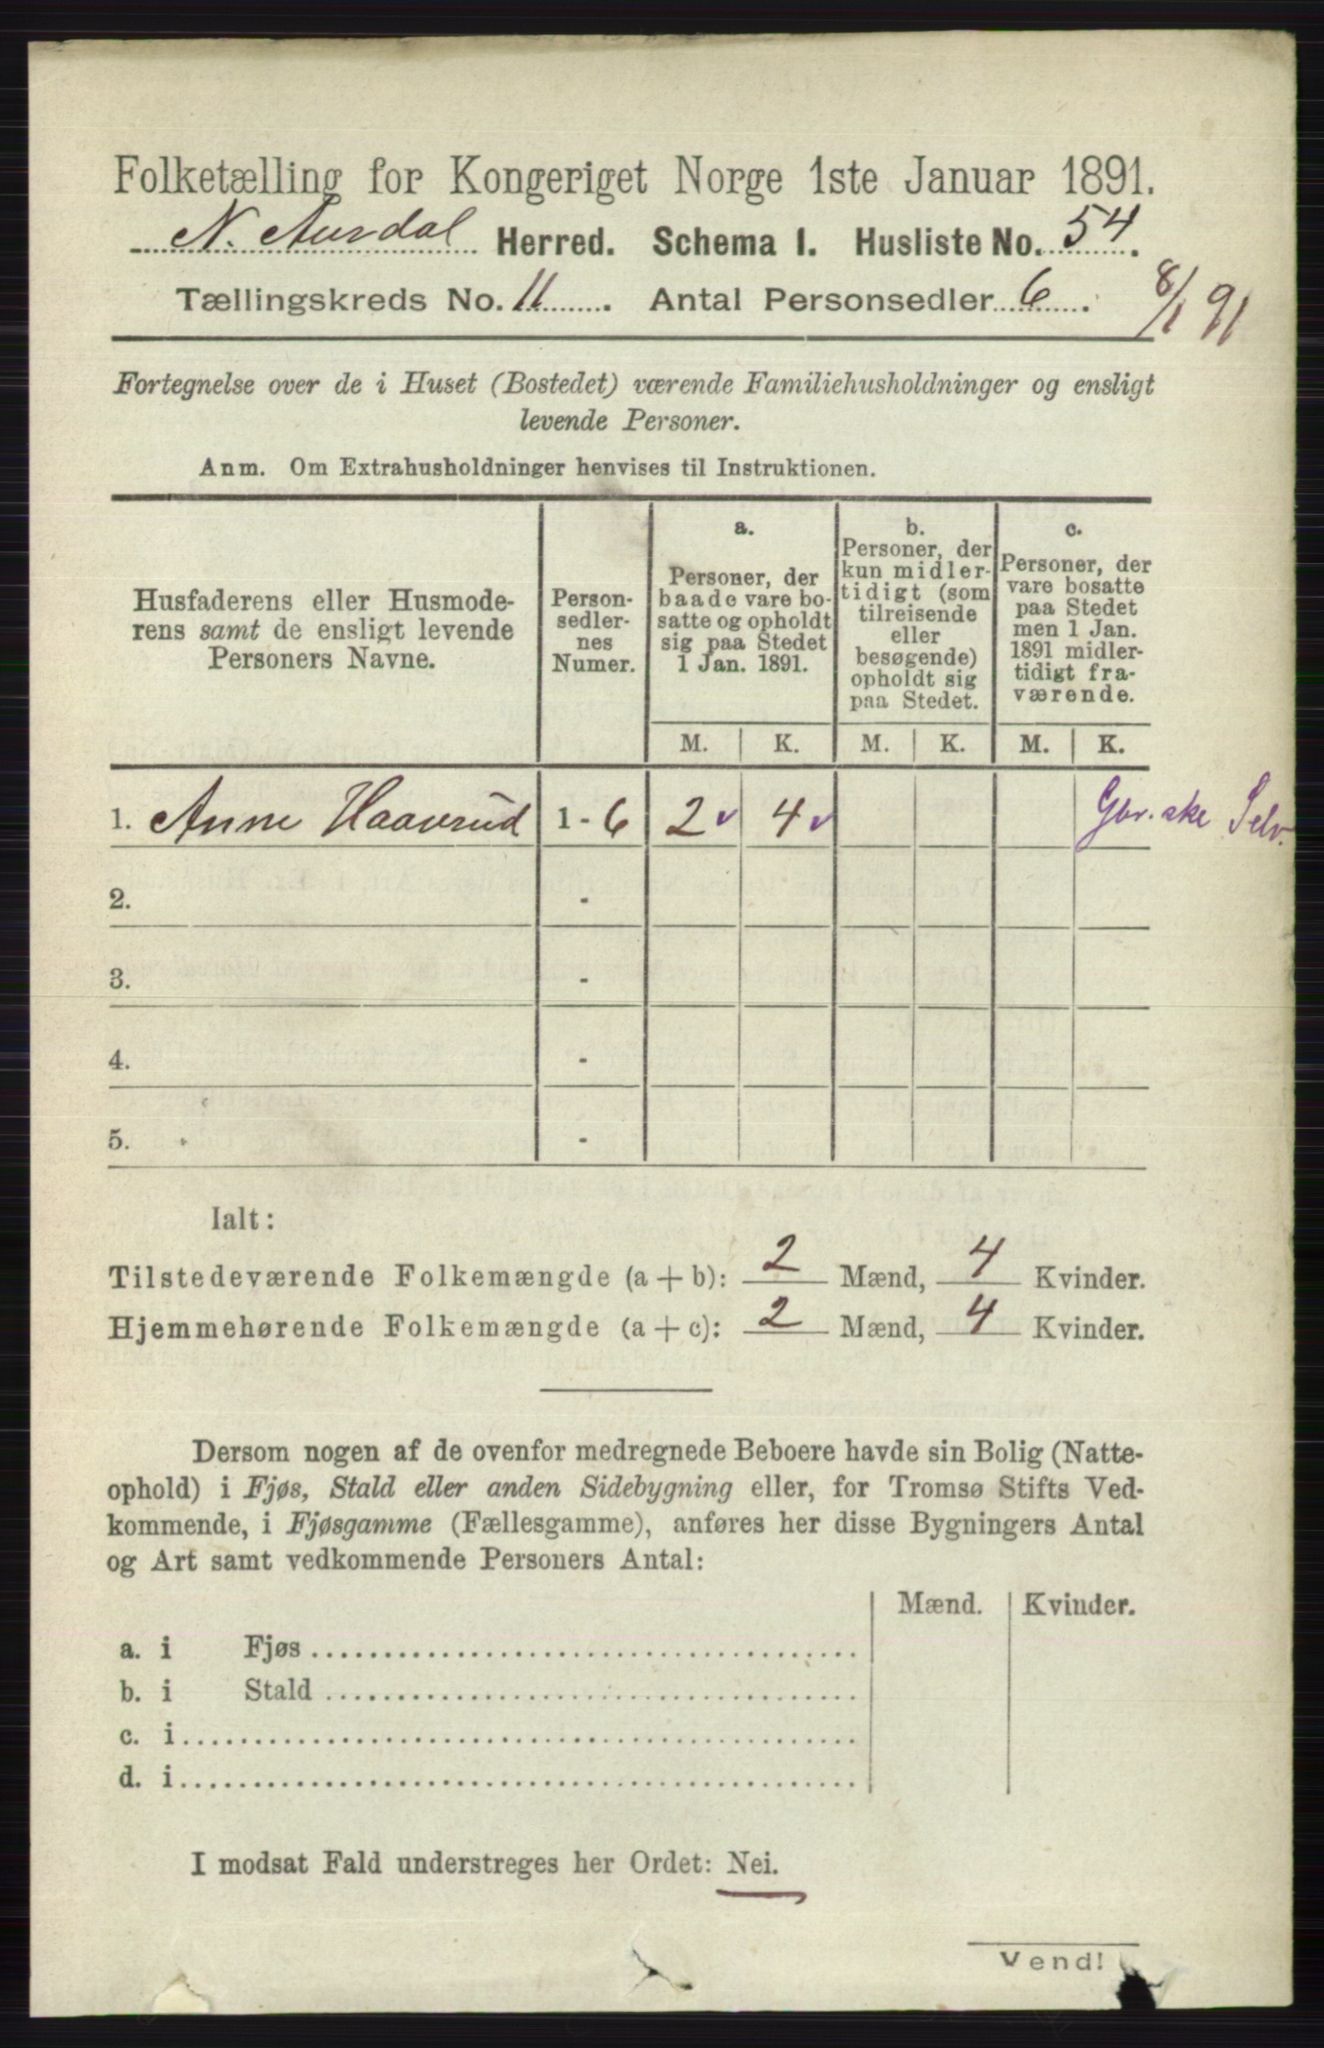 Folketælling for Kongeriget Norge 1ste Januar 1891.
N. Aurdal Herred. Schema I. Husliste No. 54.
Tællingskreds No. 11. Antal Personsedler 6.
8/1 91
Fortegnelse over de i Huset (Bostedet) værende Familiehusholdninger og ensligt
levende Personer.
Anm. Om Extrahusholdninger henvises til Instruktionen.
Husfaderens eller Husmode-
rens samt de ensligt levende
Personers Navne.
Person-
sedler-
nes
Numer.
a.
Personer, der
baade vare bo-
satte og opholdt
sig paa Stedet
1 Jan. 1891.
b.
Personer, der
kun midler-
tidigt (som
tilreisende
eller
besøgende)
opholdt sig
paa Stedet.
c.
Personer, der
vare bosatte
paa Stedet
men 1 Jan.
1891 midler-
tidigt fra-
værende.
M. K. M. K. M. K.
1. Anne Haavrud 1 - 6 2 4 Gbr. ske Selv.
2. -
3. -
4. -
5. -
Ialt:
Tilstedeværende Folkemængde (a + b): 2 Mænd, 4 Kvinder.
Hjemmehørende Folkemængde (a + c): 2 Mænd, 4 Kvinder.
Dersom nogen af de ovenfor medregnede Beboere havde sin Bolig (Natte-
ophold) i Fjøs, Stald eller anden Sidebygning eller, for Tromsø Stifts Ved-
kommende, i Fjøsgamme (Fællesgamme), anføres her disse Bygningers Antal
og Art samt vedkommende Personers Antal:
Mænd. Kvinder.
a. i Fjøs
b. i Stald
c. i
d. i
I modsat Fald understreges her Ordet: Nei.
Vend!